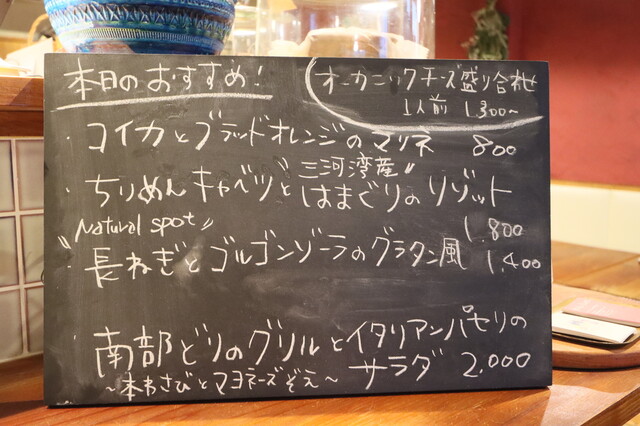 本日のおすすめ！
オーガニックチーズ盛り合わせ
1人前 1.300〜
・コイカとブラッドオレンジのマリネ 800
"三河湾産"
・ちりめんキャベツとはまぐりのリゾット
1.800
"Natural spot"
・長ねぎとゴルゴンゾーラのグラタン風 1,400
・南部どりのグリルとイタリアンパセリの
サラダ 2.000
〜本わさびとマヨネーズぞえ〜